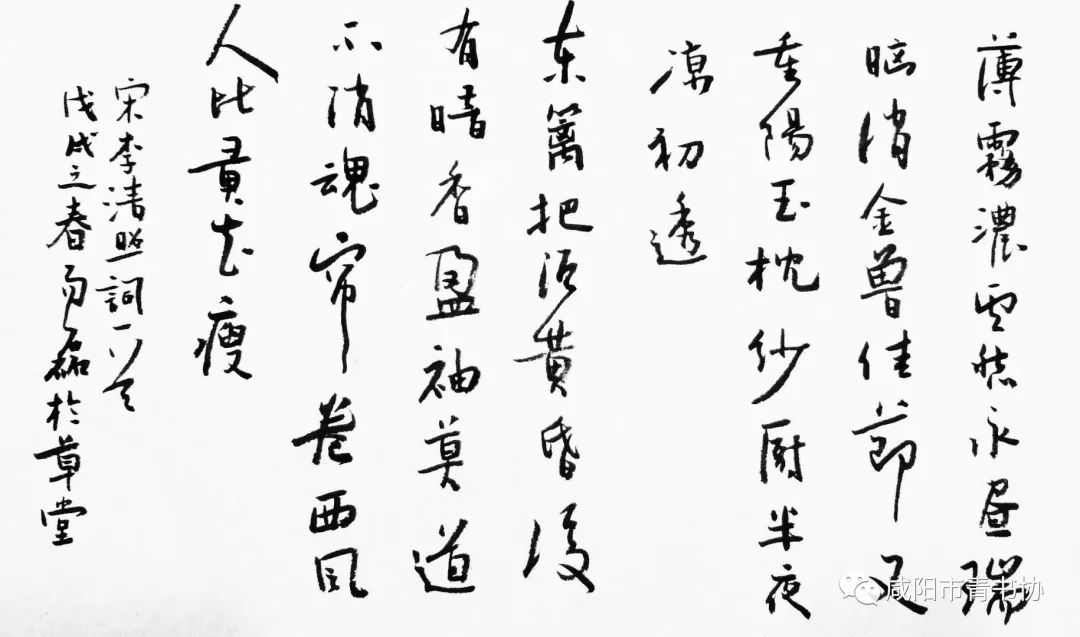 薄霧濃雲愁永昼瑞
脑消金兽佳節又
重陽玉枕纱厨半夜
凉初透
东篱把酒黄昏後
有暗香盈袖莫道
不消魂帘卷西风
人比黄花瘦
宋李清照詞一首
戊戌之春易磊於草堂
咸阳市青书协